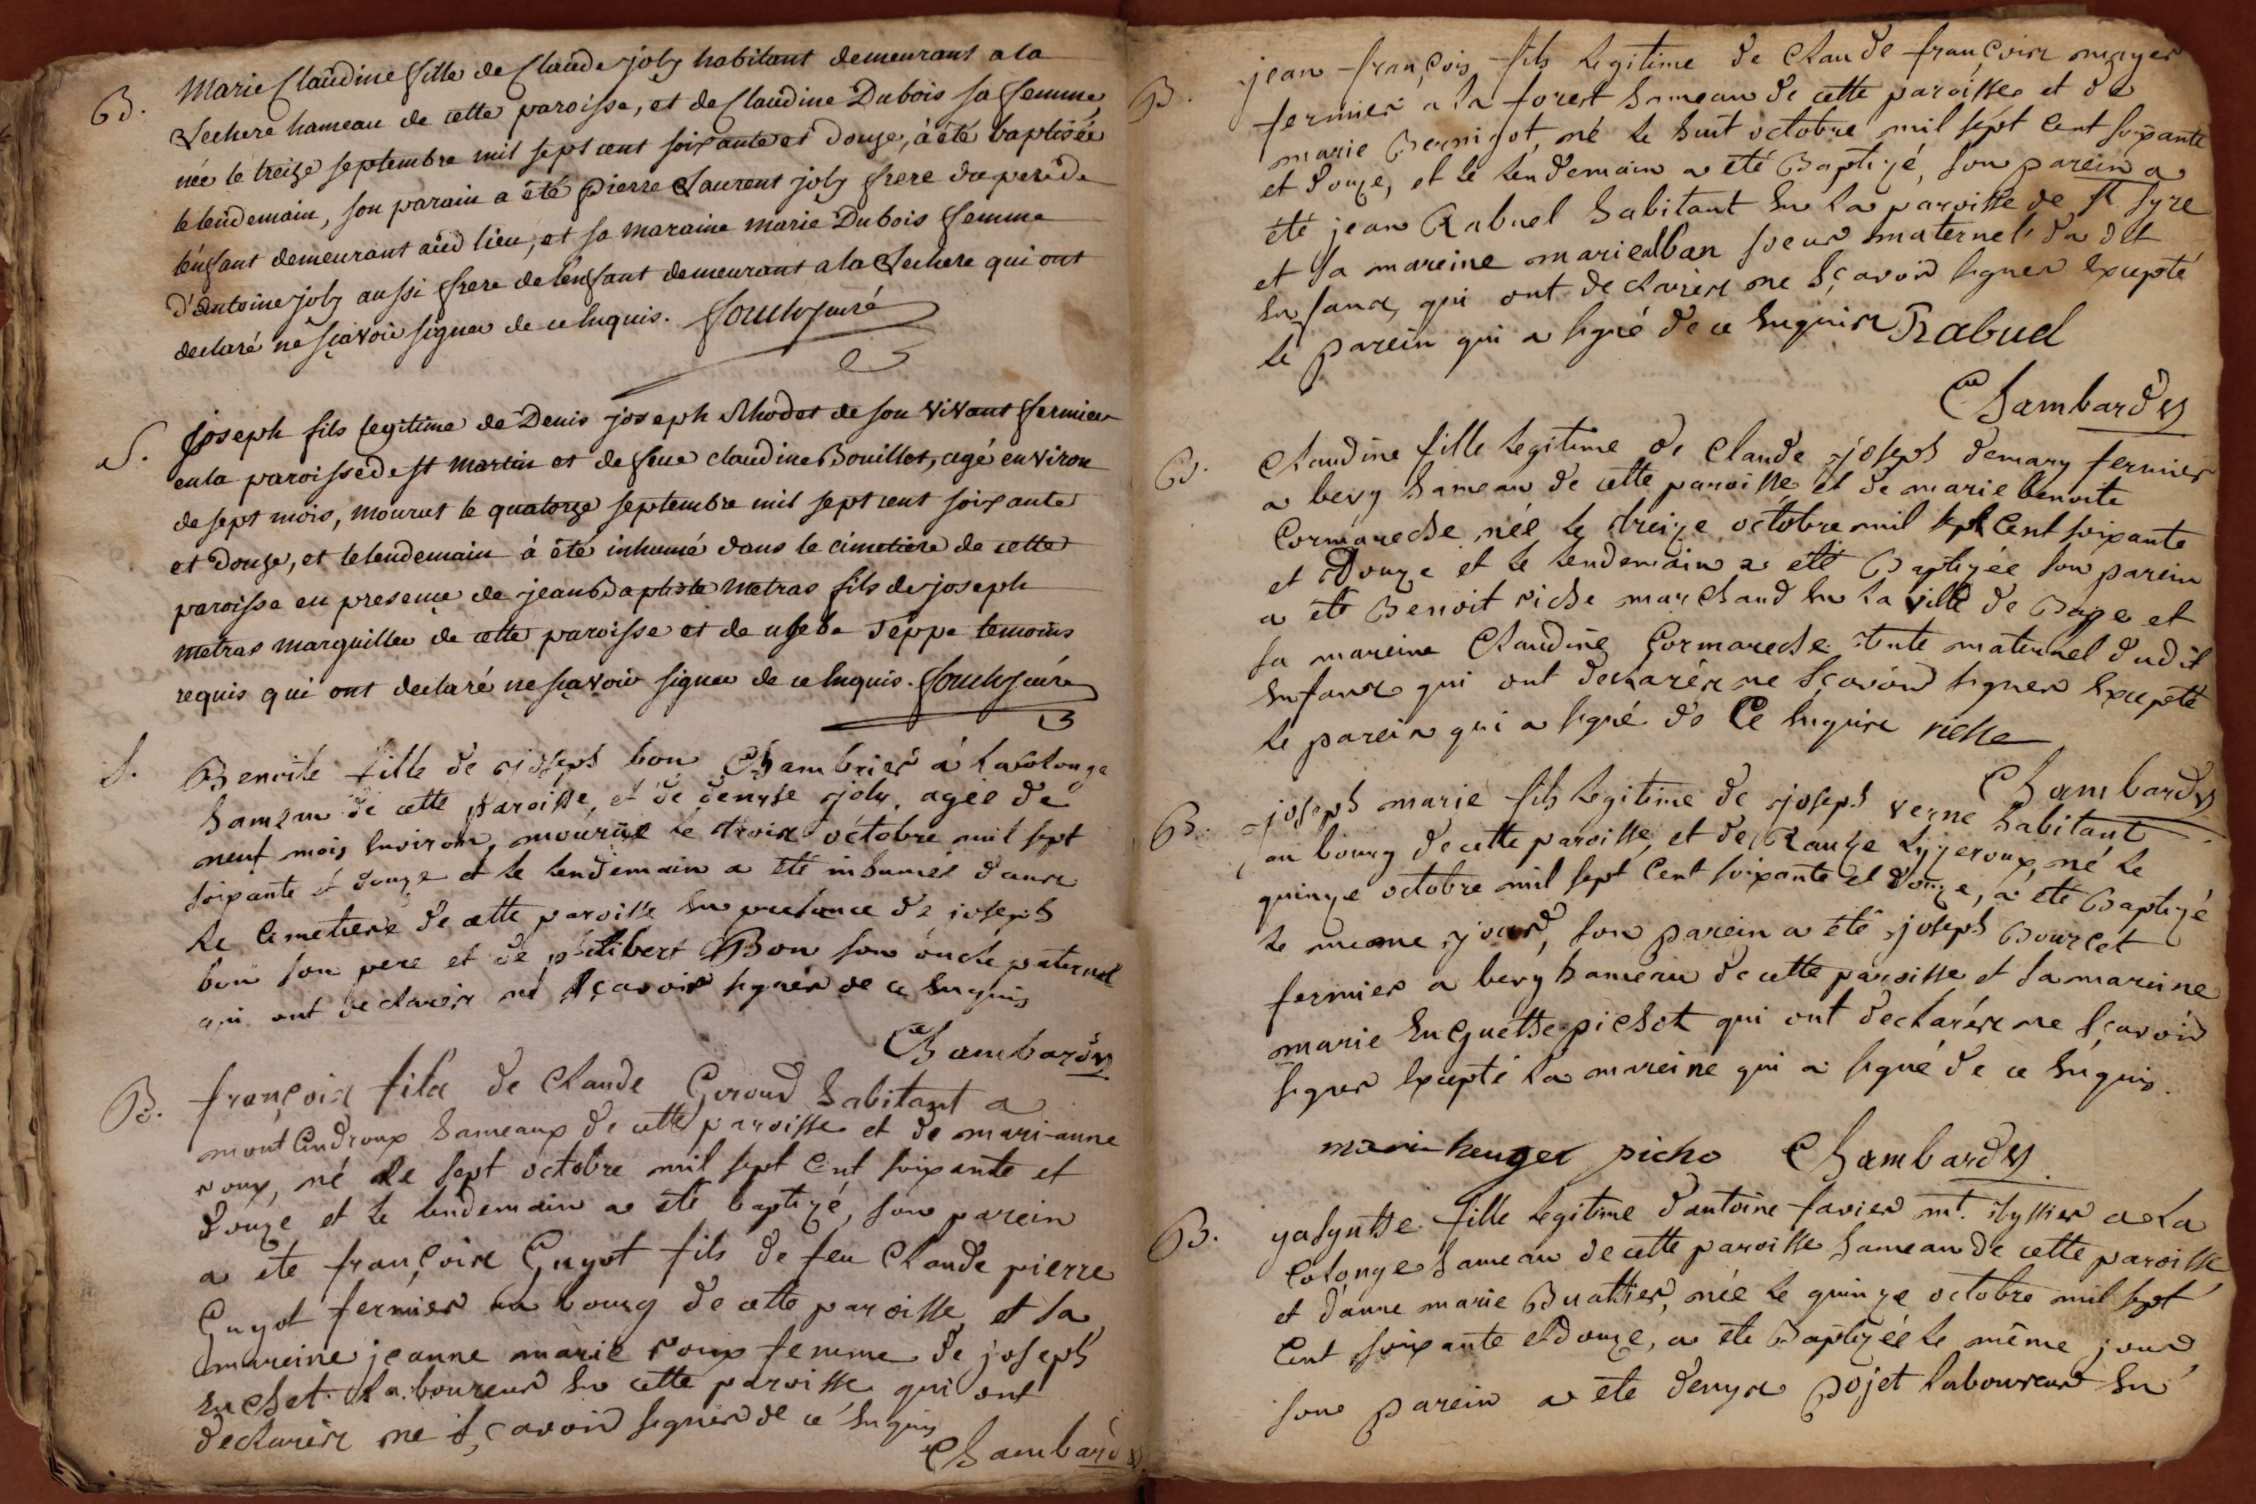 B. Marie Claudine fille de Claude joly habitant demeurant a la
Vechere hameau de cette paroisse, et de Claudine Dubois sa femme
née le treize septembre mil sept cent soixante et douze, à été baptisée
le lendemain, son parain a été pierre Laurent joly frere du pere de
l'enfant demeurant aud lieu, et sa maraine marie Dubois femme
d'antoine joly aussi frere de lenfant demeurant a la Vechere qui ont
declaré ne sçavoir signer de ce enquis.
S. Joseph fils legitime de Denis joseph Rhodet de son vivant fermier
en la paroisse de st martin et de feue claudine Bouillot, agé environ
de sept mois, mourut le quatorze septembre mil sept cent soixante
et douze, et le lendemain à été inhumé dans le cimetiere de cette
paroisse en presence de jean Baptiste metras fils de joseph
metras marguillier de cette paroisse et de temoins
requis qui ont declaré ne sçavoir signer de ce enquis.
S. Benoite fille de joseph bon Chambrier à la Colonge
hameau de cette paroisse, et de denyse joly, agée de
neuf mois environ, mourut le trois octobre mil sept
soixante et douze et le lendemain a été inhumée dans
le cimetiere de cette paroisse en presence de joseph
bon son pere et de philibert Bon son oncle paternel
qui ont declarés ne sçavoir signer de ce enquis
Chambard
B. françois fils de Claude Geroud habitant a
mont Cindroux hameaux de cette paroisse et de mari-anne
roux, né le sept octobre mil sept cent soixante et
douze et le lendemain a été baptizé, son parein
a été françois Guyot fils de feu Claude pierre
Guyot fermier au bourg de cette paroisse et sa
mareine jeanne marie roux femme de joseph
huchet laboureur en cette paroisse qui ont
declarés ne sçavoir signer de ce enquis
Chambard
B. jean françois fils legitime de Claude françois
fermier a la forest hameau de cette paroisse et de
marie Bernigot, né le huit octobre mil sept cent soixante
et douze, et le lendemain a été Baptizé, son parein a
été jean Rabuel habitant en la paroisse de st Syre
et sa mareine marie alban soeur maternel du dit
enfant, qui ont declarés ne sçavoir signer excepté
le parein qui a signé de ce enquis Rabuel
Chambard
B. Claudine fille legitime de Claude joseph demary fermier
a bevy hameau de cette paroisse et de marie benoite
Cormareche née le treize octobre mil sept cent soixante
et Douze et le lendemain a été Baptizée son parein
a été Benoit riche marchand en la ville de Bage et
sa mareine Claudine Cormareche tente maternel dudit
enfant qui ont declarés ne sçavoir signer excepté
le parein qui a signé de Ce enquis riche
Chambard
B. joseph marie fils legitime de joseph verne habitant
au bourg de cette paroisse, et de né le
quinze octobre mil sept cent soixante et douze, a été Baptizé
le meme jour, son parein a été joseph Bourcet
fermier a bevy hameau de cette paroisse et sa mareine
marie huguette pichot qui ont declarés ne sçavoir
signer excepté la mareine qui a signé de ce enquis.
marie picho Chambard
B. yasynthe fille legitime d'antoine favier mt. tyssier a la
Colonge hameau de cette paroisse hameau de cette paroisse
et d'anne marie Buathier, née le quinze octobre mil sept
Cent soixante et douze, a été Baptizée le même jour
son parein a été denys pojet laboureur en